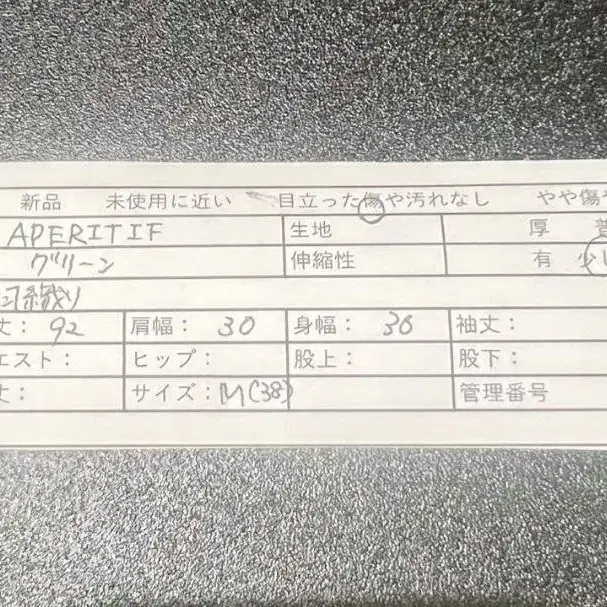 新品 未使用に近い 目立った傷や汚れなし やや傷や
APERITIF 生地 厚 普
グリーン 伸縮性 有 少し
織り
丈: 92 肩幅: 30 身幅: 36 袖丈:
エスト: ヒップ: 股上: 股下:
丈: サイズ: M(38) 管理番号